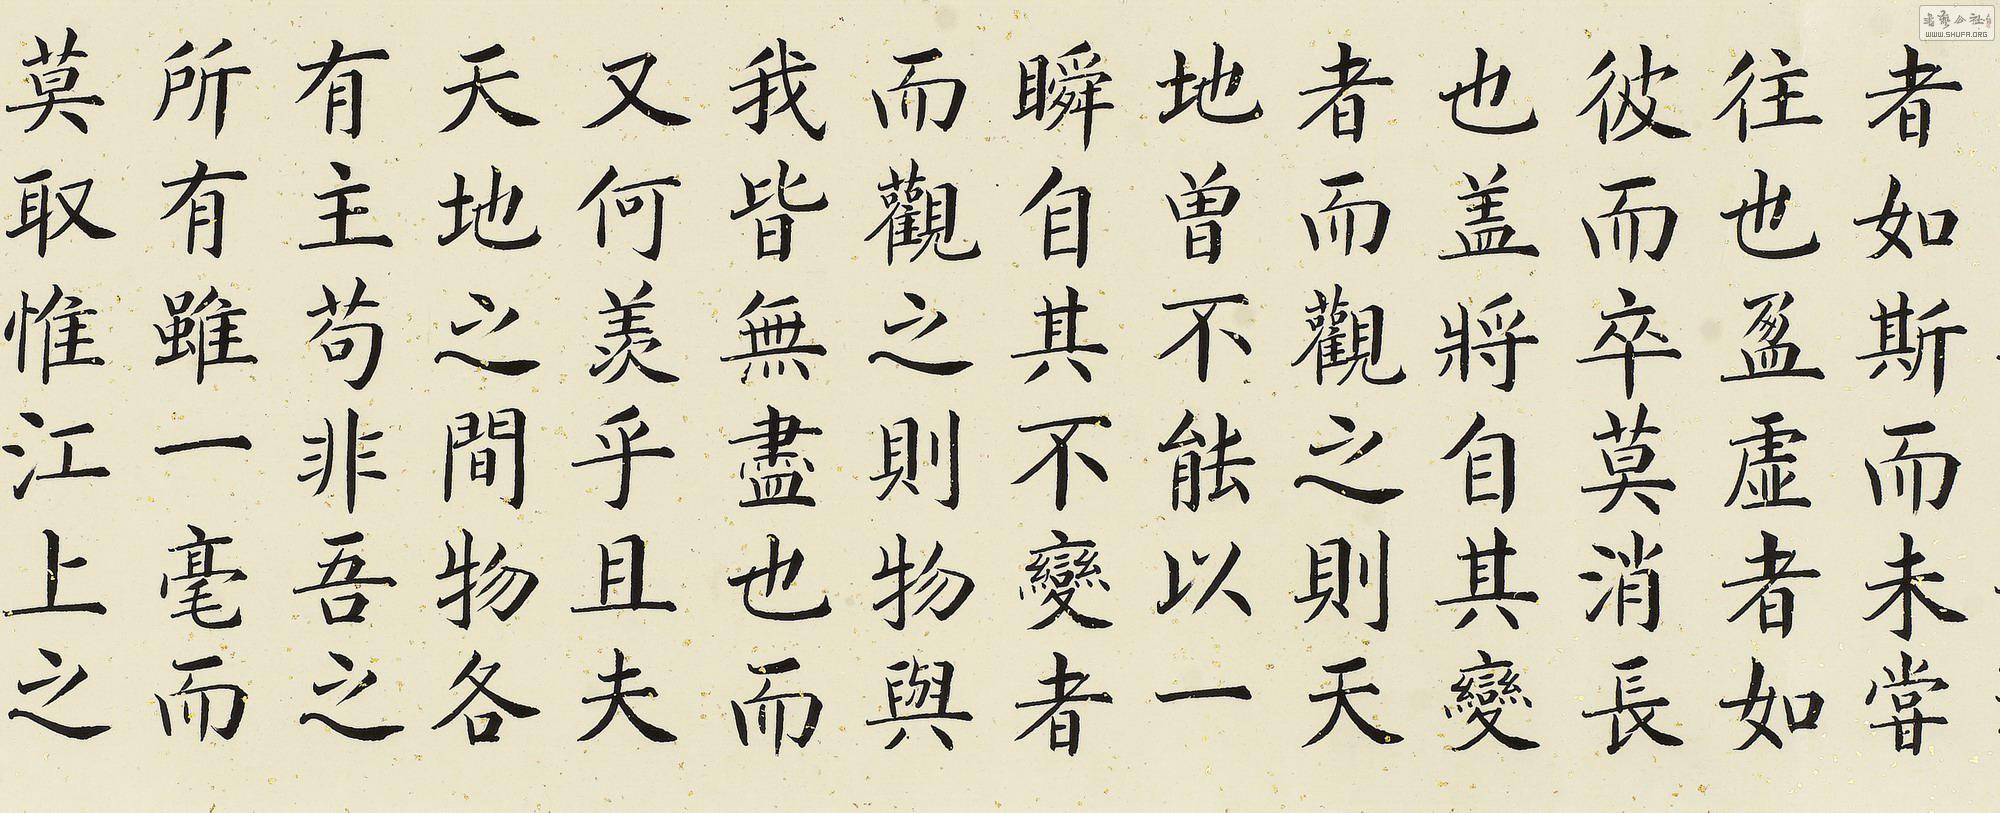 者如斯而未嘗
往也盈虛者如
彼而卒莫消長
也盖將自其變
者而觀之則天
地曾不能以一
瞬自其不變者
而觀之則物與
我皆無盡也而
又何羨乎且夫
天地之間物各
有主苟非吾之
所有雖一毫而
莫取惟江上之
WWW.SHUFA.ORG